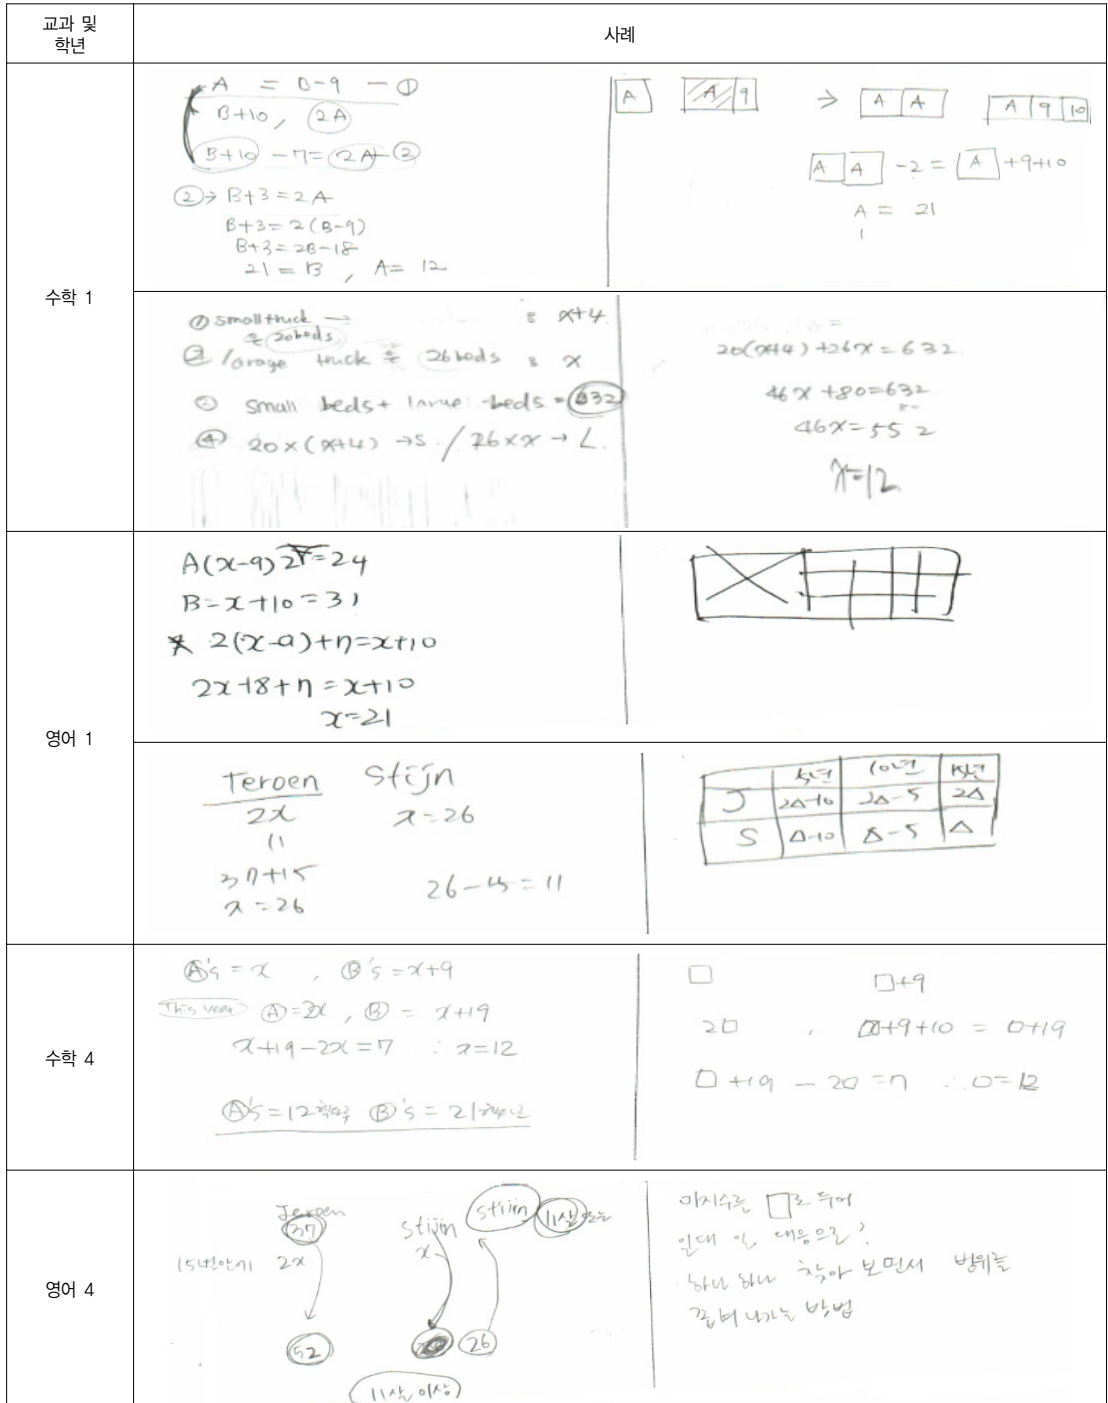 교과 및
학년
사례
수학 1
A = B-9 - ①
B+10, 2A
B+10 - 7 = 2A - ②
② → B+3 = 2A
B+3 = 2(B-9)
B+3 = 2B-18
21 = B, A = 12
A A 9 → A A A 9 10
A A -2 = A +9+10
A = 21
① small truck → : x+4
은 20beds
② large truck 은 26 beds : x
③ small beds + large beds = 632
④ 20×(x+4) → S. / 26×x → L.
20(x+4)+26x=632
46x+80=632
80
46x=552
x=12
영어 1
A(x-9)
=24
B=x+10=31
2(x-9)+7=x+10
2x+8+7=x+10
x=21
Jeroen Stijn
2x x=26
11
37+15
x=26
26-15=11
5년 10년 15년
J 2△-10 2△-5 2△
S △-10 △-5 △
수학 4
Ⓐ's = x , Ⓑ's = x+9
This year Ⓐ=2x , Ⓑ = x+19
x+19-2x=7 ∴ x=12
Ⓐ's=12헥타르 Ⓑ's = 21헥타르
□ □+9
2□ , □+9+10 = □+19
□+19 - 2□ = 7 ∴ □=12
영어 4
Jeroen
37
stijn
x
stijn
11살
15년안에 2x
52
26
11살 이상
미지수를 □로 두어
일대 일 대응으로?
하나 하나 찾아 보면서 범위를
좁혀 나가는 방법